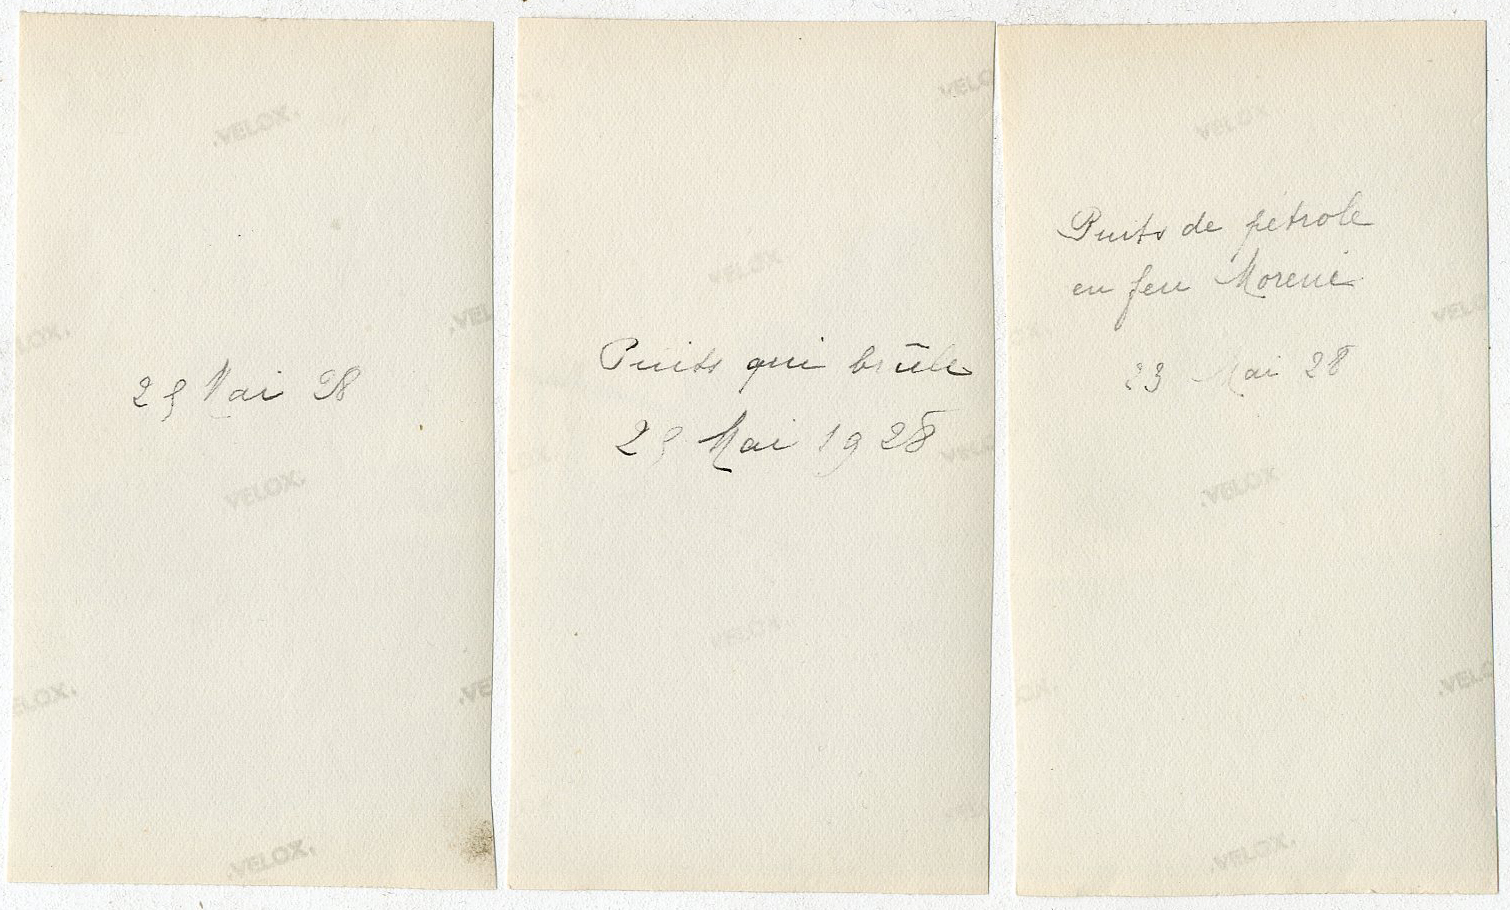 .VELOX.
.VELOX.
.VELOX.
25 Mai 28
VELOX.
VELOX
VELOX
Puits qui brûle
25 Mai 1928
VELOX
VELOX
Puits de pétrole
en feu Moreni
23 Mai 28
.VELOX
.VELOX.